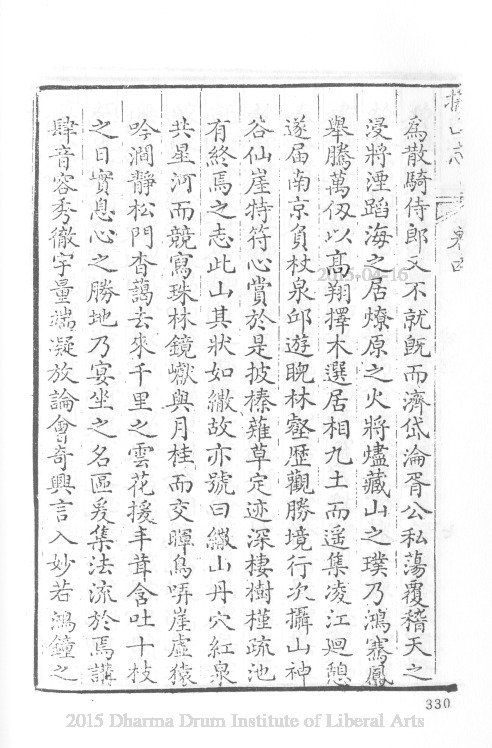 攝山志 卷四
爲散騎侍郎又不就旣而濟岱淪胥公私蕩覆稽天之
浸將湮蹈海之居燎原之火將燼藏山之璞乃鴻騫鳳
舉騰萬仭以高翔擇木選居相九土而遥集凌江迴憩
遂届南京負杖泉邱遊睨林壑歴觀勝境行次攝山神
谷仙崖特符心賞於是披榛薙草定迹深棲樹槿疏池
有終焉之志此山其狀如繖故亦號曰繖山丹穴紅泉
共星河而競寫珠林鏡巘與月桂而交暉鳥哢崖虛猿
吟澗靜松門杳藹去來千里之雲花援丰茸含吐十枝
之日實息心之勝地乃宴坐之名區爰集法流於焉講
肆音容秀徹宇量端凝放論會奇興言入妙若鴻鐘之
330
2015-04-16
2015 Dharma Drum Institute of Liberal Arts